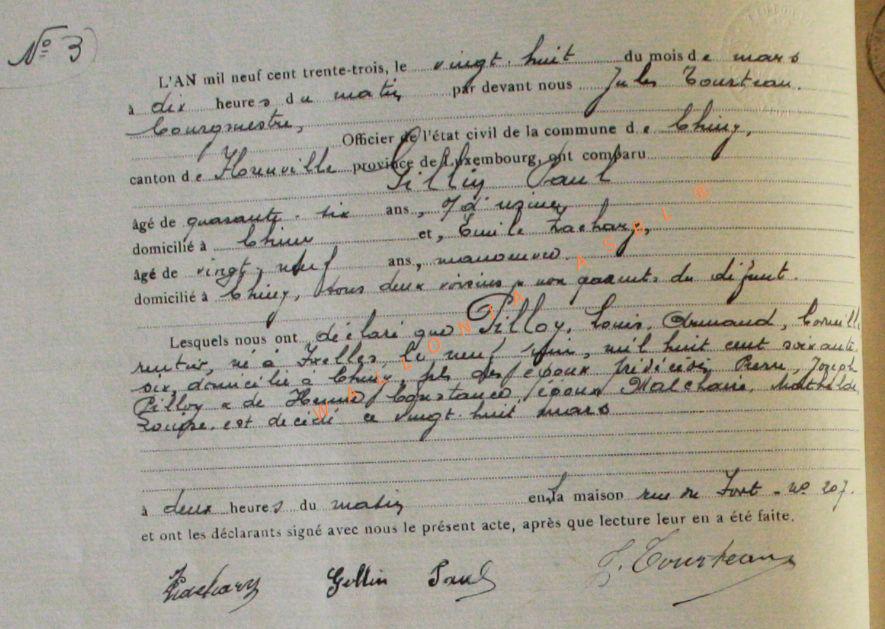 N° 3
L'AN mil neuf cent trente-trois, le vingt-huit du mois de mars
à dix heures du matin par devant nous Jules Tourteau.
bourgmestre,
Officier de l'état civil de la commune de Chiny,
canton de Florenville province de Luxembourg, ont comparu
Gillin Paul
âgé de quarante-six ans, d'usine,
domicilié à Chiny et, Emile Zachary,
âgé de vingt-neuf ans, manoeuvre
domicilié à Chiny, tous deux voisins & non parents du défunt.
Lesquels nous ont déclaré que Pilloy, Louis, Armand, Corneille
rentier, né à Ixelles le neuf juin, mil huit cent soixante
six, domicilié à Chiny fils des époux prédécédés Pierre, Joseph
Pilloy & de Constance, époux Malchaire, Mathilde,
est décédé ce vingt-huit mars
à deux heures du matin en la maison rue du Fort - n° 207.
et ont les déclarants signé avec nous le présent acte, après que lecture leur en a été faite.
Zachary Gillin Paul J. Tourteau
WALLONIA ASBL ©